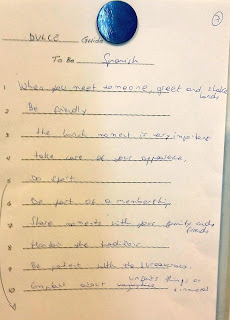 DULCE Guide
To Be Spanish
1 When you meet someone, greet and shake hands
2 Be friendly
3 the lunch moment is very important
4 take care of your appearance.
5 Do sport
6 be part of a membership
7 Share moments with your family and friends
8 Maintain the tradition
9 Be patient with the bureaucracy
10 Complain about unjust things